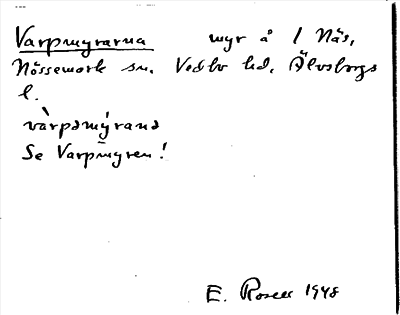 Varpmyrarna myr å 1 Näs,
Nössemark sn. Vedbo hd. Älvsborgs
l.
vàrpəmýrana
Se Varpmyren!
E. Rosell 1948